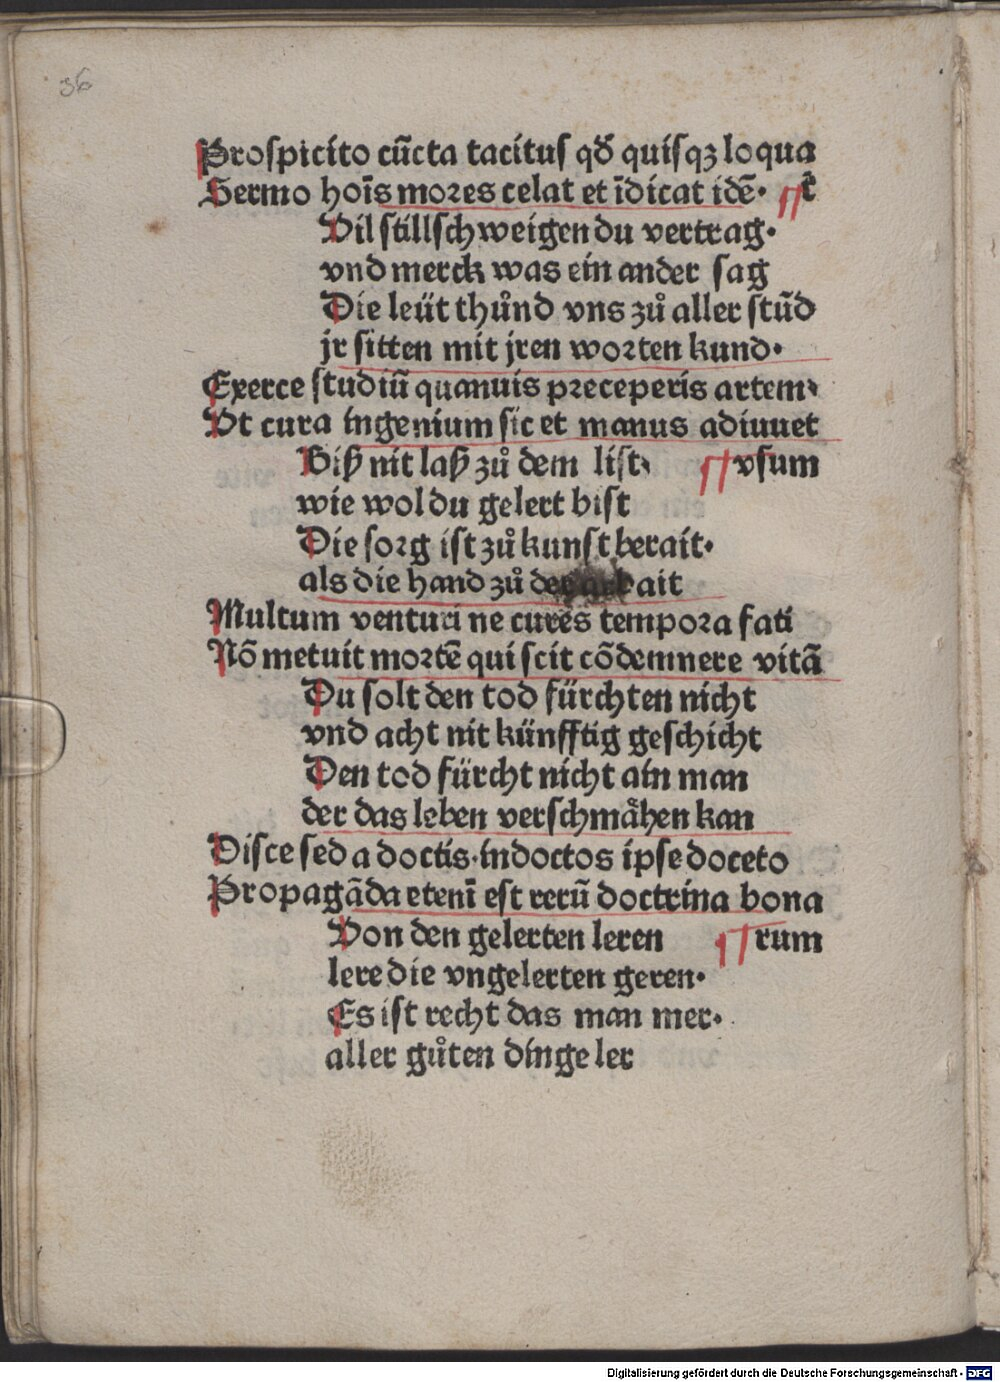 36
Prospicito cūcta tacitus qđ quisqꝫ loqua
Sermo hoīs mores celat et īdicat idē· tᷣ
Vil stillschweigen du vertrag·
vnd merck was ein ander sag
Die leüt thůnd vns zů aller stūd
jr sitten mit jren worten kund·
Exerce studiū quanuis preceperis artem
Vt cura ingenium sic et manus adiuuet
Biß nit laß zů dem list vsum
wie wol du gelert bist
Die sorg ist zů kunst berait·
als die hand zů der arbait
Multum venturi ne cures tempora fati
Nō metuit mortē qui scit cōdemnere vitā
Du solt den tod fürchten nicht
vnd acht nit künfftig geschicht
Den tod fürcht nicht ain man
der das leben verschmåhen kan
Disce sed a doctis·indoctos ipse doceto
Propagāda etenī est rerū doctrina bona
Von den gelerten leren rum
lere die vngelerten geren·
Es ist recht das man mer·
aller gůten dinge ler
Digitalisierung gefördert durch die Deutsche Forschungsgemeinschaft - DFG